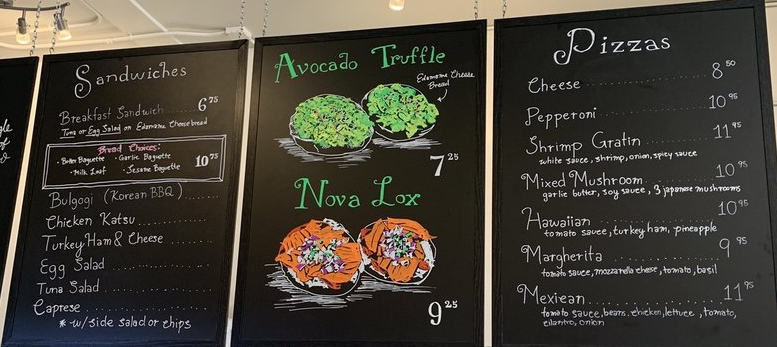 Sandwiches
Breakfast Sandwich 6 75
Tuna or Egg Salad on Edamame Cheese bread
Bread Choices:
• Butter Baguette • Garlic Baguette
• Milk Loaf • Sesame Baguette
10 75
Bulgogi (Korean BBQ)
Chicken Katsu
Turkey Ham & Cheese
Egg Salad
Tuna Salad
Caprese
* w/side salad or chips
Avocado Truffle
Edamame Cheese
Bread
7 25
Nova Lox
9 25
Pizzas
Cheese 8 50
Pepperoni 10 95
Shrimp Gratin 11 95
white sauce, shrimp, onion, spicy sauce
Mixed Mushroom 10 95
garlic butter, soy sauce, 3 japanese mushrooms
Hawaiian 10 95
tomato sauce, turkey ham, pineapple
Margherita 9 95
tomato sauce, mozzarella cheese, tomato, basil
Mexican 11 95
tomato sauce, beans, chicken, lettuce, tomato,
cilantro, onion